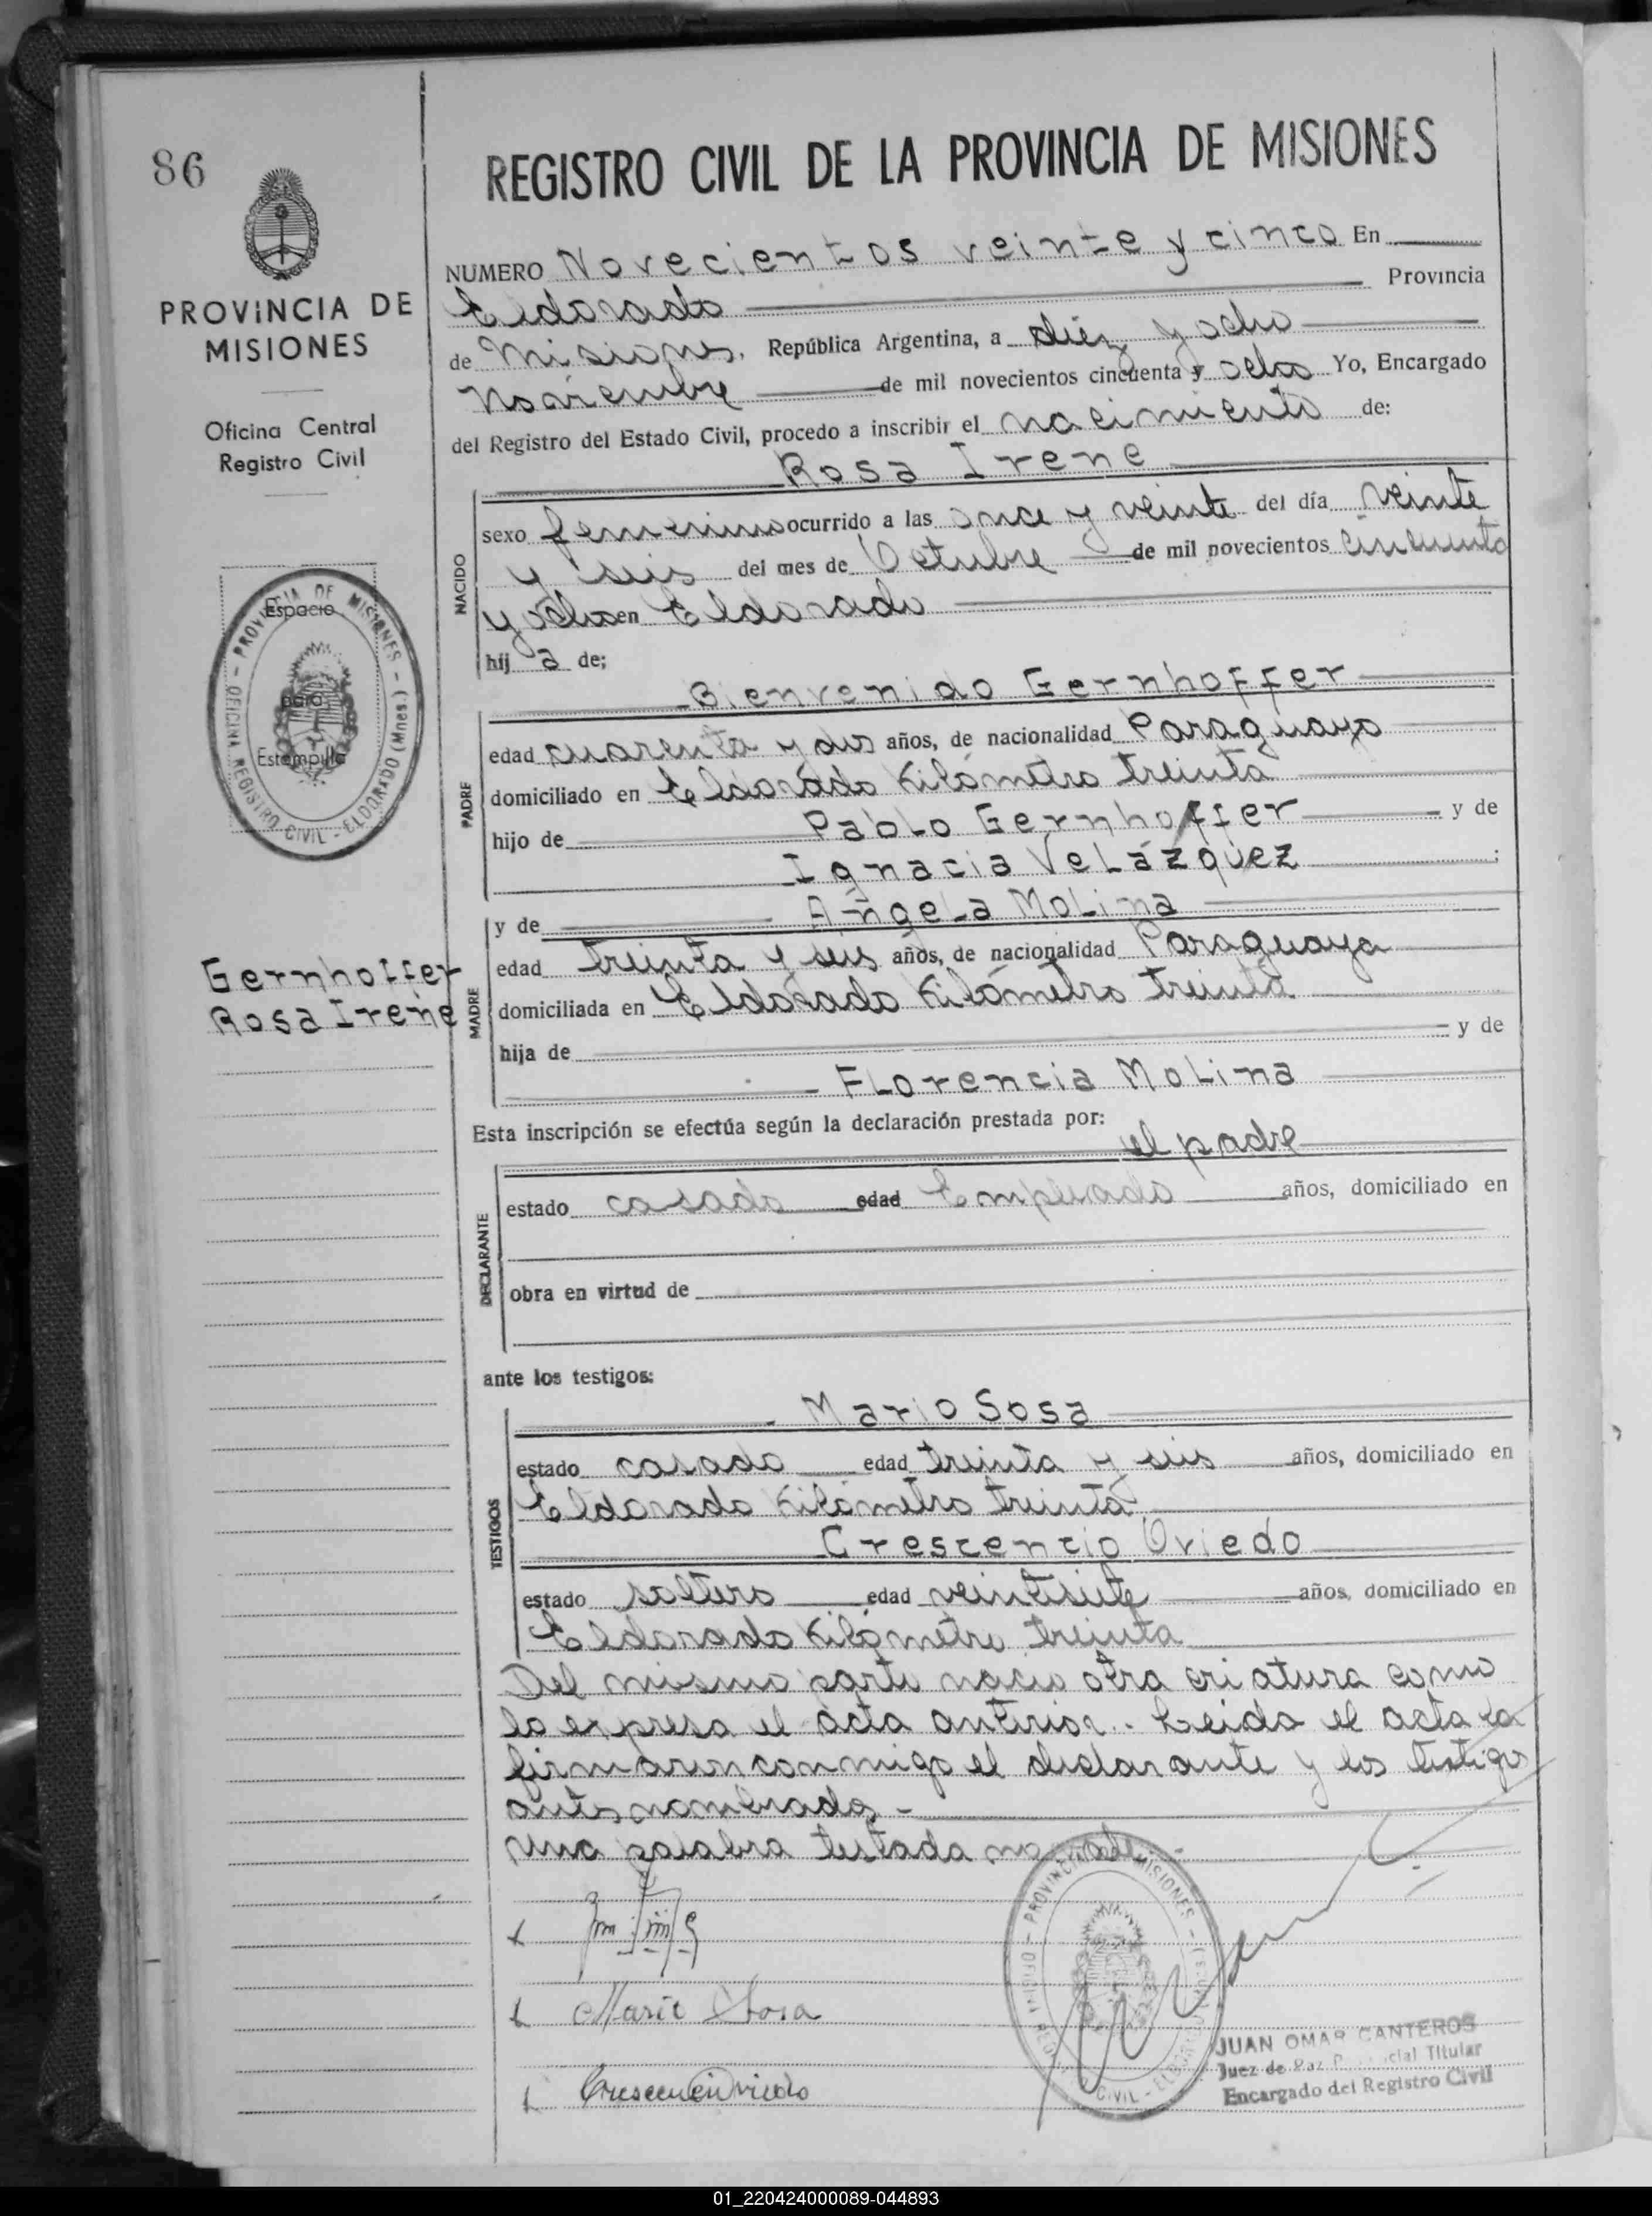 86
PROVINCIA DE
MISIONES
Oficina Central
Registro Civil
PROVINCIA DE MISIONES - OFICINA REGISTRO CIVIL - ELDORADO (Mnes.)
Espacio
para
Estampilla
Gernhoffer
Rosa Irene
REGISTRO CIVIL DE LA PROVINCIA DE MISIONES
NUMERO Novecientos veinte y cinco En
Eldorado Provincia
de Misiones, República Argentina, a diez y ocho
Noviembre de mil novecientos cincuenta y ocho Yo, Encargado
del Registro del Estado Civil, procedo a inscribir el nacimiento de:
Rosa Irene
NACIDO
sexo femenino ocurrido a las once y veinte del día veinte
y seis del mes de Octubre de mil novecientos cincuenta
y ocho en Eldorado
hij a de;
Bienvenido Gernhoffer
PADRE
edad cuarenta y dos años, de nacionalidad Paraguayo
domiciliado en Eldorado Kilómetro treinta
hijo de Pablo Gernhoffer y de
Ignacia Velázquez ;
MADRE
y de Angela Molina
edad treinta y seis años, de nacionalidad Paraguaya
domiciliada en Eldorado Kilómetro treinta
hija de y de
Florencia Molina
Esta inscripción se efectúa según la declaración prestada por:
el padre
DECLARANTE
estado casado edad Empleado años, domiciliado en
obra en virtud de
ante los testigos:
TESTIGOS
Mario Sosa
estado casado edad treinta y seis años, domiciliado en
Eldorado Kilómetro treinta
Crescencio Oviedo
estado soltero edad veintisiete años, domiciliado en
Eldorado Kilómetro treinta
Del mismo parto nacio otra criatura como
lo expresa el acta anterior.. Leida el acta la
firmaron conmigo el declarante y los testigos
antes nombrados -
Una palabra testada no vale.-
Mario Sosa
PROVINCIA DE MISIONES - OFICINA REGISTRO CIVIL - ELDORADO (Mnes.)
JUAN OMAR CANTEROS
Juez de Paz cial Titular
Encargado del Registro Civil
01_220424000089-044893